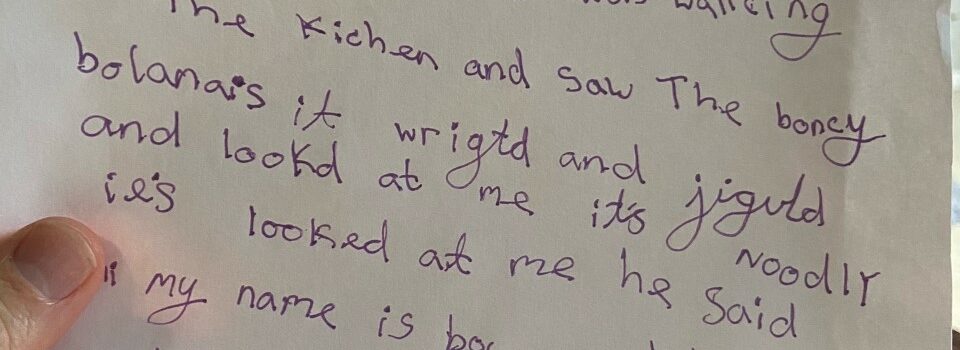 walking
The Kichen and saw The boney
bolanais it wrigtd and jiguld
and lookd at me it's Noodly
ie's looked at me he said
" my name is